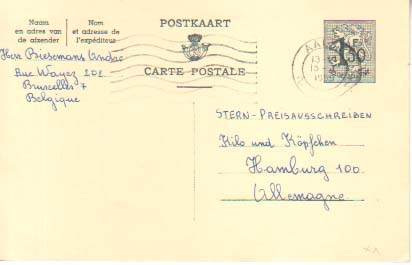 Naam
en adres van
de afzender
Nom
et adresse de
l'expéditeur
POSTKAART
CARTE POSTALE
Herr Biesemans Andre
Rue Wayez 202
Bruxelles 7
Belgique
STERN-PREISAUSSCHREIBEN
Kilo und Köpfchen
Hamburg 100
Allemagne